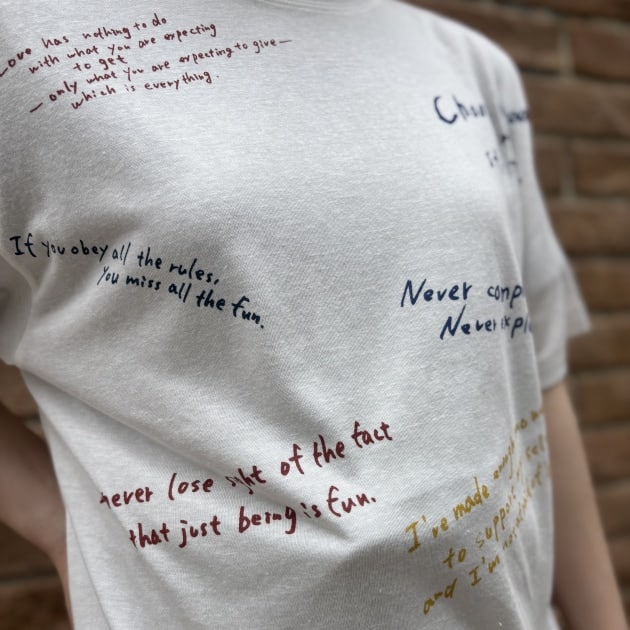 Love has nothing to do
with what you are expecting
to get
— only what you are expecting to give —
which is everything.
If you obey all the rules,
you miss all the fun.
Never
Never
never lose sight of the fact
that just being is fun.
I've made enough
to support
and I'm not